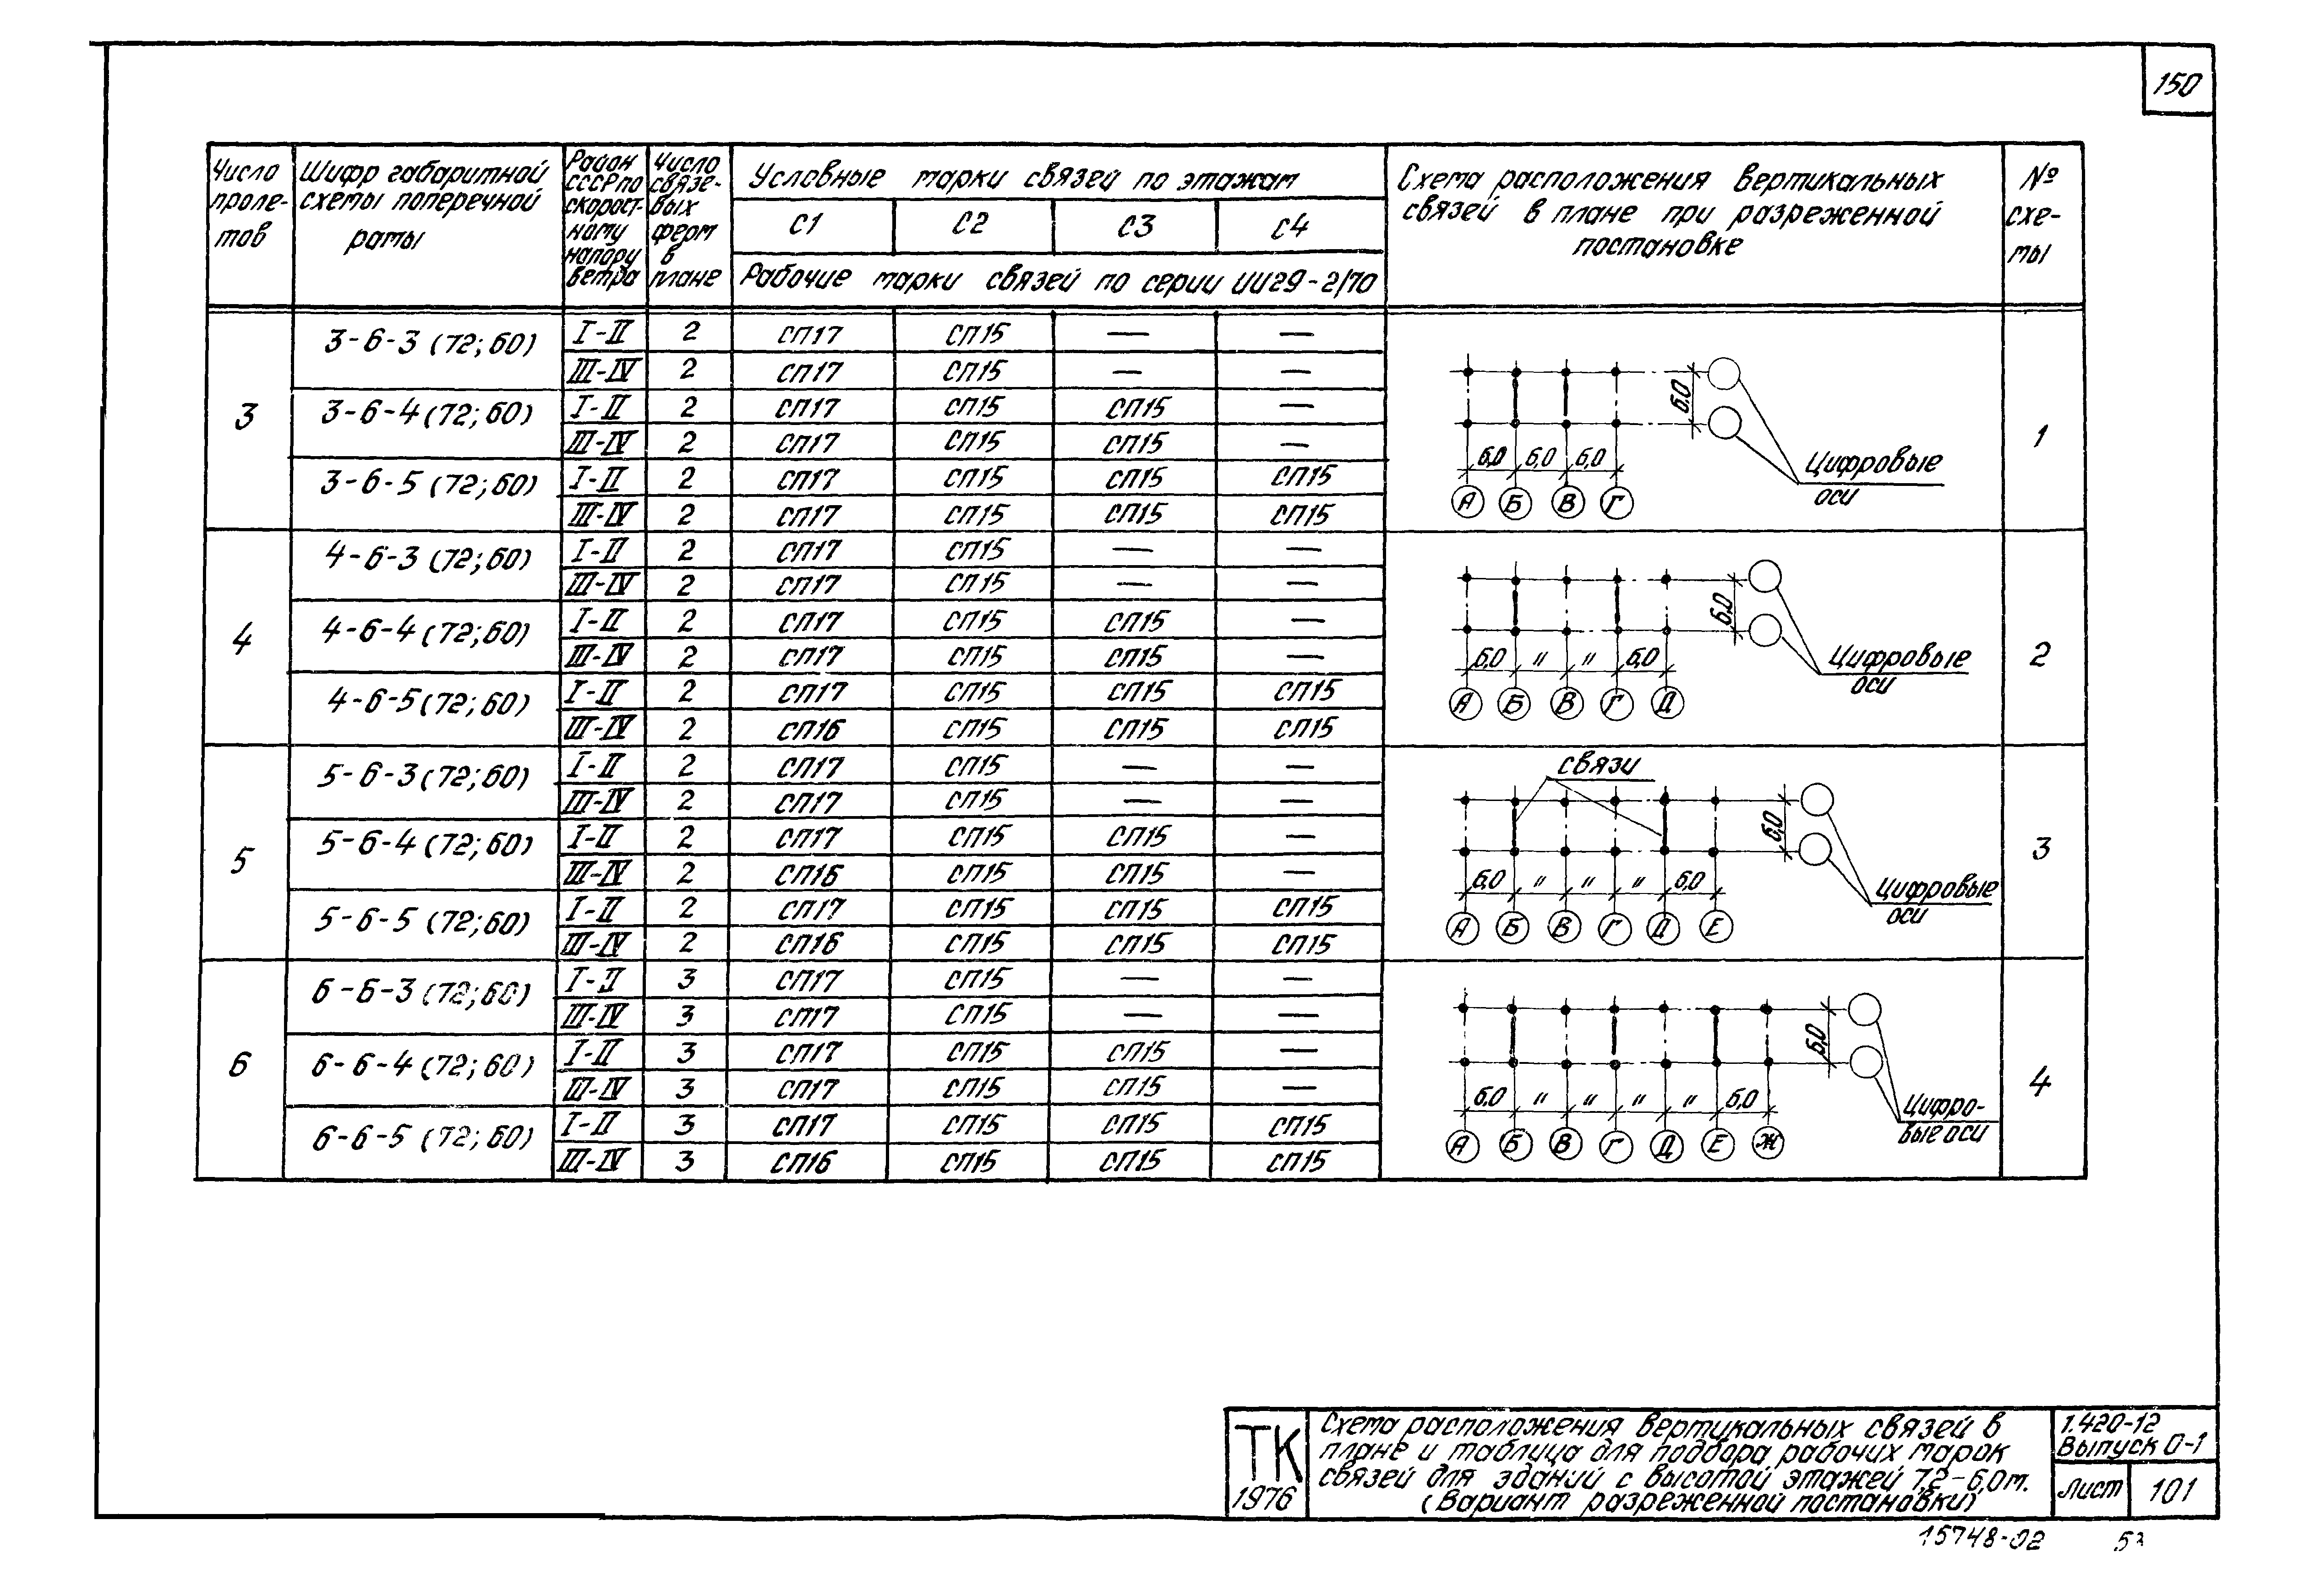 150
Число пролетов | Шифр габаритной схемы поперечной рамы | Район СССР по скоростному напору ветра | Число связевых ферм в плане | Условные марки связей по этажам | Схема расположения вертикальных связей в плане при разреженной постановке | № схемы
С1 | С2 | С3 | С4
Рабочие марки связей по серии ИИ29-2/70
3 | 3-6-3 (72;60) | I-II | 2 | СП17 | СП15 | — | — | 1
III-IV | 2 | СП17 | СП15 | — | —
3-6-4 (72;60) | I-II | 2 | СП17 | СП15 | СП15 | —
III-IV | 2 | СП17 | СП15 | СП15 | —
3-6-5 (72;60) | I-II | 2 | СП17 | СП15 | СП15 | СП15
III-IV | 2 | СП17 | СП15 | СП15 | СП15
6,0
6,0 6,0 6,0
Цифровые
оси
А Б В Г
4 | 4-6-3 (72;60) | I-II | 2 | СП17 | СП15 | — | — | 2
III-IV | 2 | СП17 | СП15 | — | —
4-6-4 (72;60) | I-II | 2 | СП17 | СП15 | СП15 | —
III-IV | 2 | СП17 | СП15 | СП15 | —
4-6-5 (72;60) | I-II | 2 | СП17 | СП15 | СП15 | СП15
III-IV | 2 | СП16 | СП15 | СП15 | СП15
6,0
6,0 " " 6,0
Цифровые
оси
А Б В Г Д
5 | 5-6-3 (72;60) | I-II | 2 | СП17 | СП15 | — | — | 3
III-IV | 2 | СП17 | СП15 | — | —
5-6-4 (72;60) | I-II | 2 | СП17 | СП15 | СП15 | —
III-IV | 2 | СП16 | СП15 | СП15 | —
5-6-5 (72;60) | I-II | 2 | СП17 | СП15 | СП15 | СП15
III-IV | 2 | СП16 | СП15 | СП15 | СП15
связи
6,0
6,0 " " " 6,0
Цифровые
оси
А Б В Г Д Е
6 | 6-6-3 (72;60) | I-II | 3 | СП17 | СП15 | — | — | 4
III-IV | 3 | СП17 | СП15 | — | —
6-6-4 (72;60) | I-II | 3 | СП17 | СП15 | СП15 | —
III-IV | 3 | СП17 | СП15 | СП15 | —
6-6-5 (72;60) | I-II | 3 | СП17 | СП15 | СП15 | СП15
III-IV | 3 | СП16 | СП15 | СП15 | СП15
6,0
6,0 " " " " 6,0
Цифро-
вые оси
А Б В Г Д Е Ж
ТК
1976
Схема расположения вертикальных связей в
плане и таблица для подбора рабочих марок
связей для зданий с высотой этажей 7,2-6,0м.
(Вариант разреженной постановки)
1.420-12
Выпуск 0-1
Лист 101
15748-02 53